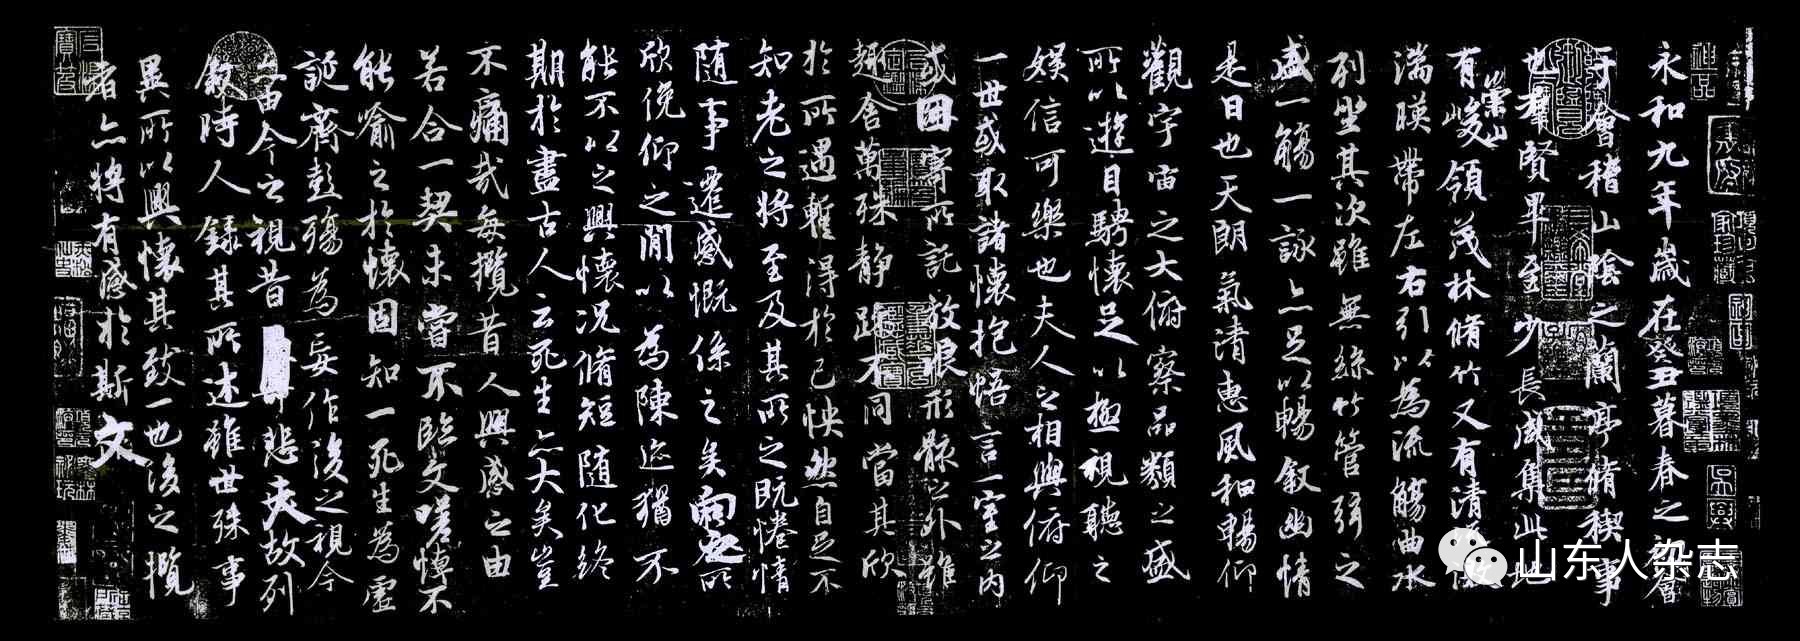 永和九年歲在癸丑暮春之初會
于會稽山陰之蘭亭脩稧事
也羣賢畢至少長咸集此地
有崇山峻領茂林脩竹又有清流激
湍暎帶左右引以為流觴曲水
列坐其次雖無絲竹管弦之
盛一觴一詠亦足以暢敘幽情
是日也天朗氣清惠風和暢仰
觀宇宙之大俯察品類之盛
所以遊目騁懷足以極視聽之
娛信可樂也夫人之相與俯仰
一世或取諸懷抱悟言一室之內
或因寄所託放浪形骸之外雖
趣舍萬殊靜躁不同當其欣
於所遇暫得於己怏然自足不
知老之將至及其所之既惓情
隨事遷感慨係之矣向之所
欣俛仰之閒以為陳迹猶不
能不以之興懷況脩短隨化終
期於盡古人云死生亦大矣豈
不痛哉每攬昔人興感之由
若合一契未嘗不臨文嗟悼不
能喻之於懷固知一死生為虛
誕齊彭殤為妄作後之視今
亦由今之視昔悲夫故列
敘時人錄其所述雖世殊事
異所以興懷其致一也後之攬
者亦將有感於斯文
山东人杂志